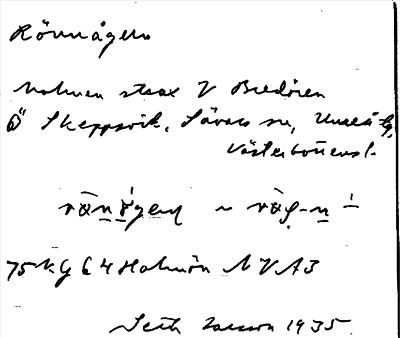 Rönnågern
holmen strax V Bredören
Ö Skeppsvik, Sävars sn, Umeå tg,
Västerbottens l.
75 NG 64 Holmön NV A3
Seth Larsson 1935